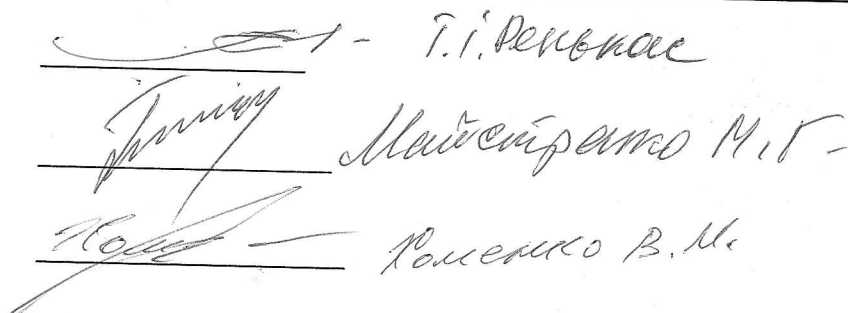 Т.І. Ренькас
Майстренко М.Г.
Хоменко В.М.